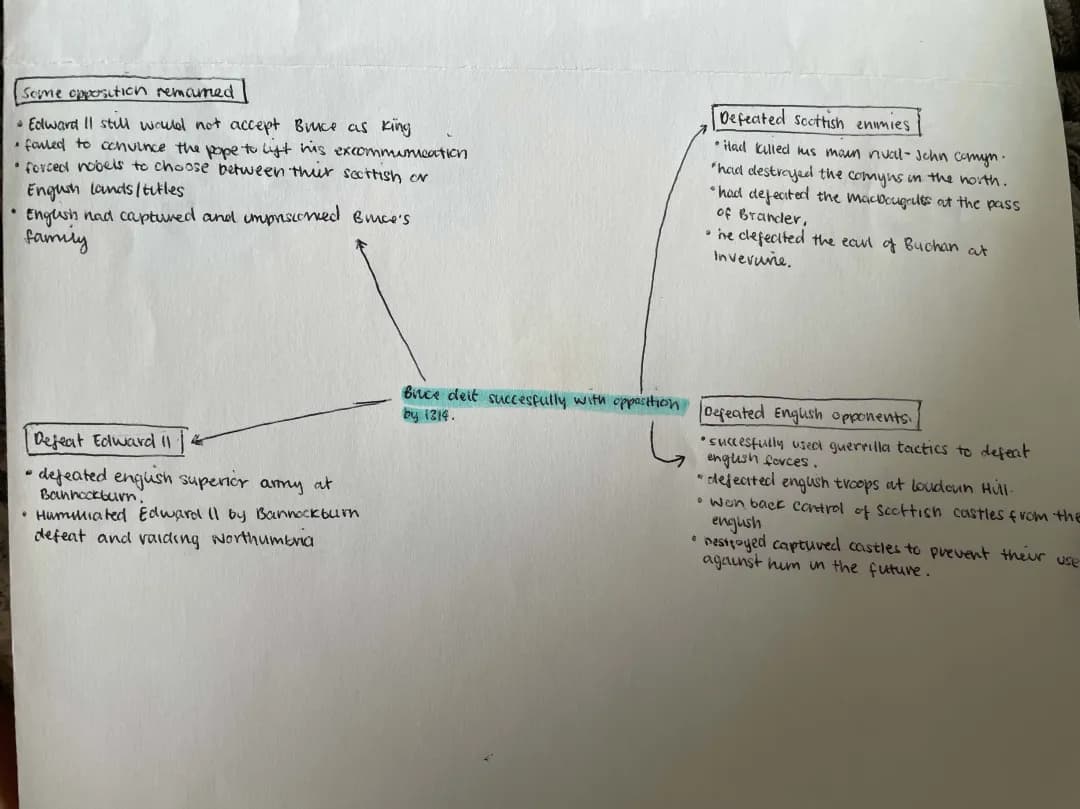 Some opposition remained
• Edward II still would not accept Bruce as King
• failed to convince the pope to lift his excommunication
• forced nobels to choose between their scottish or
English lands/titles
• English had captured and imprisoned Bruce's
family
Defeated Scottish enmies
• Had killed his main rival - John Comyn.
• had destroyed the comyns in the north.
• had defeated the MacDougalls at the pass
of Brander,
• he defeated the earl of Buchan at
Inverurie.
Bruce delt succesfully with opposition
by 1314.
Defeat Edward II
• defeated english superior army at
Bannockburn.
• Humiliated Edward II by Bannockburn
defeat and raiding Northumbria
Defeated English opponents.
• succesfully used guerrilla tactics to defeat
english forces.
• defeated english troops at Loudoun Hill.
• Won back control of Scottish castles from the
english
• Destroyed captured castles to prevent their use
against him in the future.